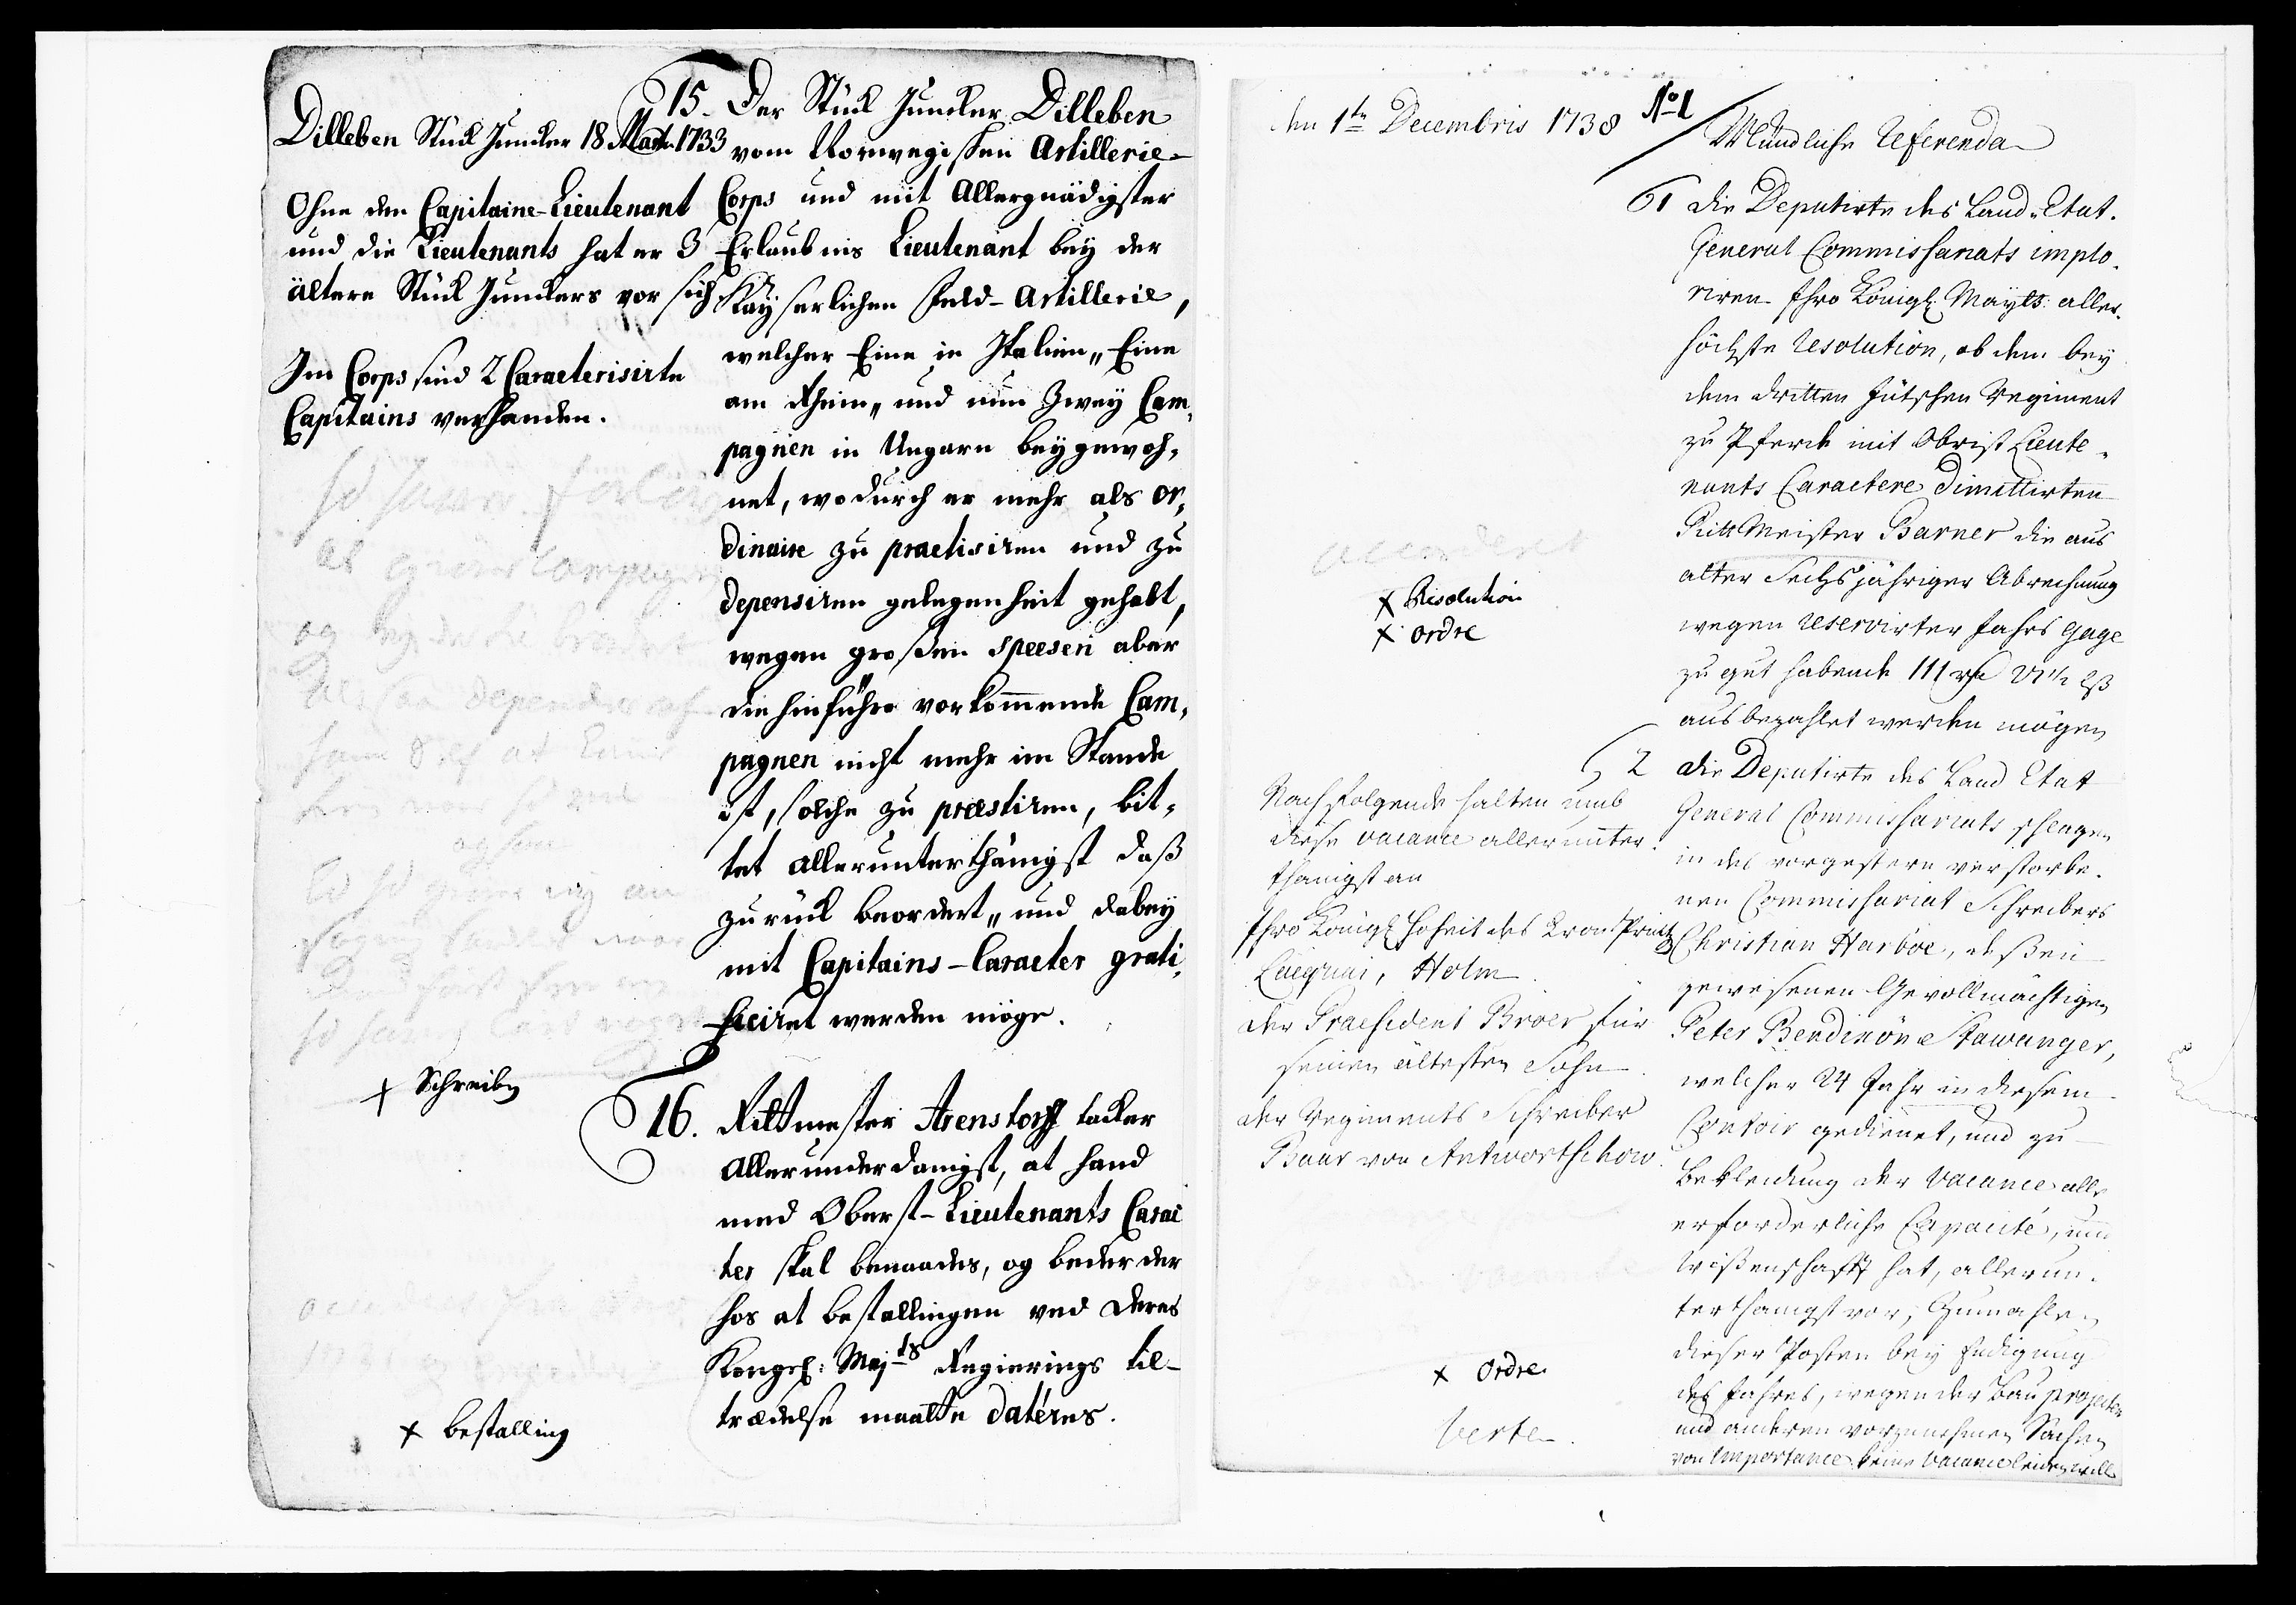 Dilleben Stück Juncker 18 Mart. 1733
Ohne den Capitaine-Lieutenant
und die Lieutenants hat er 3
ältere Stück Junckers vor sich
Im Corps sind 2 Caracterisirte
Capitains verhanden.
× Schreiben
× bestalling
15. Der Stück Juncker Dilleben
vom Norwegischen Artillerie-
Corps und mit Allergnädigster
Erlaubnis Lieutenant beÿ der
Kaÿserlichen Feld-Artillerie,
welcher Eine in Italien„ Eine
am Rhein„ und nun Zweÿ Cam-
pagnen in Ungarn beÿgewoh-
net, wodurch er mehr als or-
dinaire zu practisiren und zu
depensiren gelegenheit gehabt,
wegen großen speesen aber
die hinführo vorkom̄ende Cam-
pagnen nicht mehr im Stande
ist, solche zu præstiren, bit-
tet allerunterthänigst daß
zurück beordert„ und dabeÿ
mit Capitains-Caracter grati-
ficiret werden möge.
16. Rittmester Arenstorff tacker
allerunderdanigst, at hand
med Oberst-Lieutenants Carac
ter skal benaades, og beder der
hos at bestallingen ved Deres
Kongel: Maj<sup>ts</sup> Regierings til-
trædelse maatte datéres.
den 1<sup>ten</sup> Decembris 1738
No 1
Mündliche Referenda
1 Die Deputirte des Land-Etat-
General Commissariats implo-
riren Ihro Königl: Maÿts: aller-
höchste Resolution, ob dem beÿ
dem dritten Jütschen Regiment
zu Pferde mit Obrist Lieute-
nants Caractere dimittirten
RittMeister Barner die aus
alter Sechsjähriger Abrechnung
wegen reservirter Jahrs gage
zu gut habende 111 rdl VI½ lß
ausbezahlet werden mögen
× Resolution
× ordre
2 Die Deputirte des Land Etat
General Commissariats schlagen
in des vorgestern verstorbe-
nen Commissariat Schreibers
Christian Harboe, deßen
gewesenen Gevollmächtigen
Peter Bendixön Stawanger,
welcher 24 Jahr in diesem
Contoir gedienet, und zu
Bekleidung der Vacance alle
erforderliche Capacité, und
Wißenschafft hat, allerun-
terthänigst vor, Zumahlen
dieser Posten beÿ Endigung
des Jahres, wegen der Bau projecten
und anderen vorzunehmen Sachen
von Importance keine Vacance leiden will
Nachfolgende halten umb
diese vacance allerunter-
thänigst an
Ihro Königl: Hoheit des Cron Printz
Laquai, Holm
der Præsident Broer für
seinen ältesten Sohn
der Regiments Schreiber
Baar von Antwortschow.
× Ordre
verte